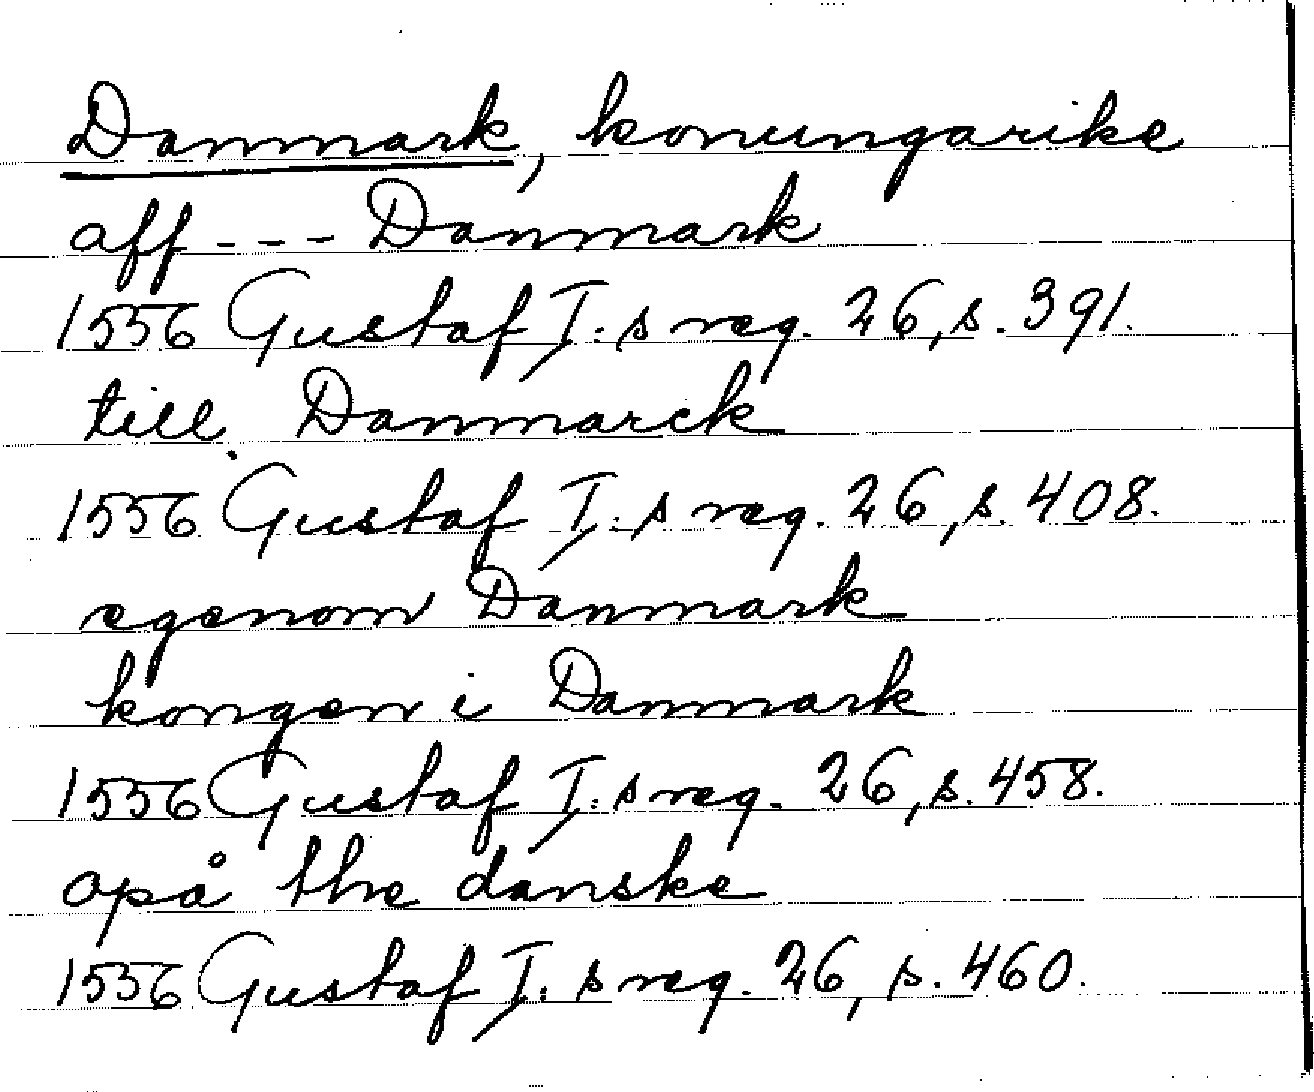 Danmark, konungarike
aff --- Danmark
1556 Gustaf I:s reg. 26, s. 391.
till Danmarck
1556 Gustaf I:s reg. 26, s. 408.
egenom Danmark
kongen i Danmark
1556 Gustaf I:s reg. 26, s. 458.
opå the danske
1556 Gustaf I:s reg. 26, s. 460.